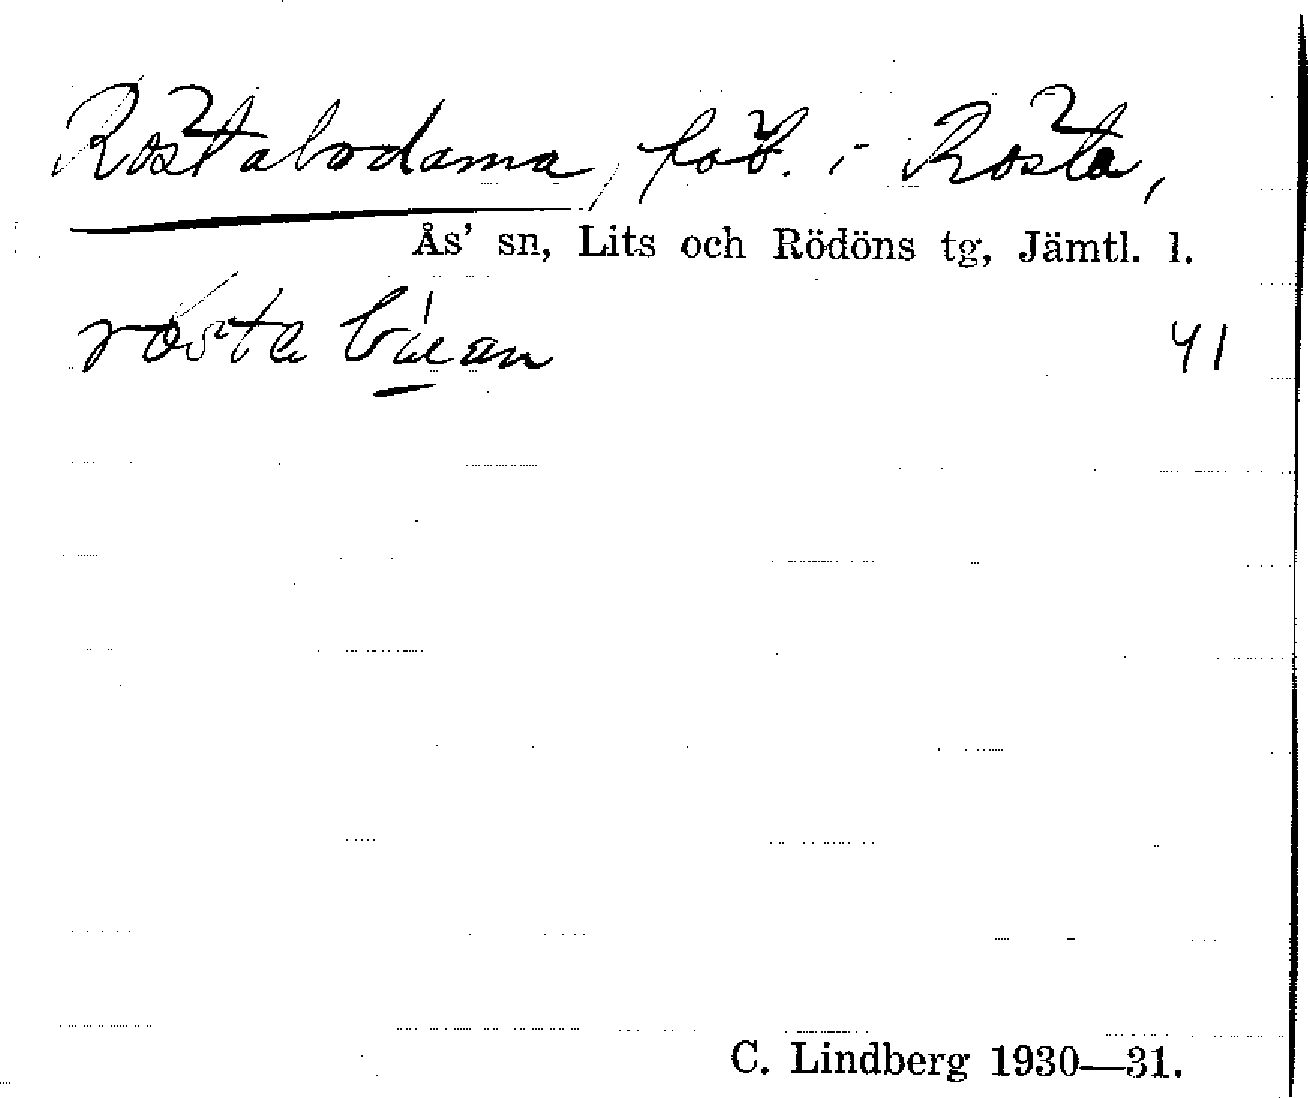 Röstabodarna, fäb. i Rösta,
Ås' sn, Lits och Rödöns tg, Jämtl. l.
rösta 41
C. Lindberg 1930—31.